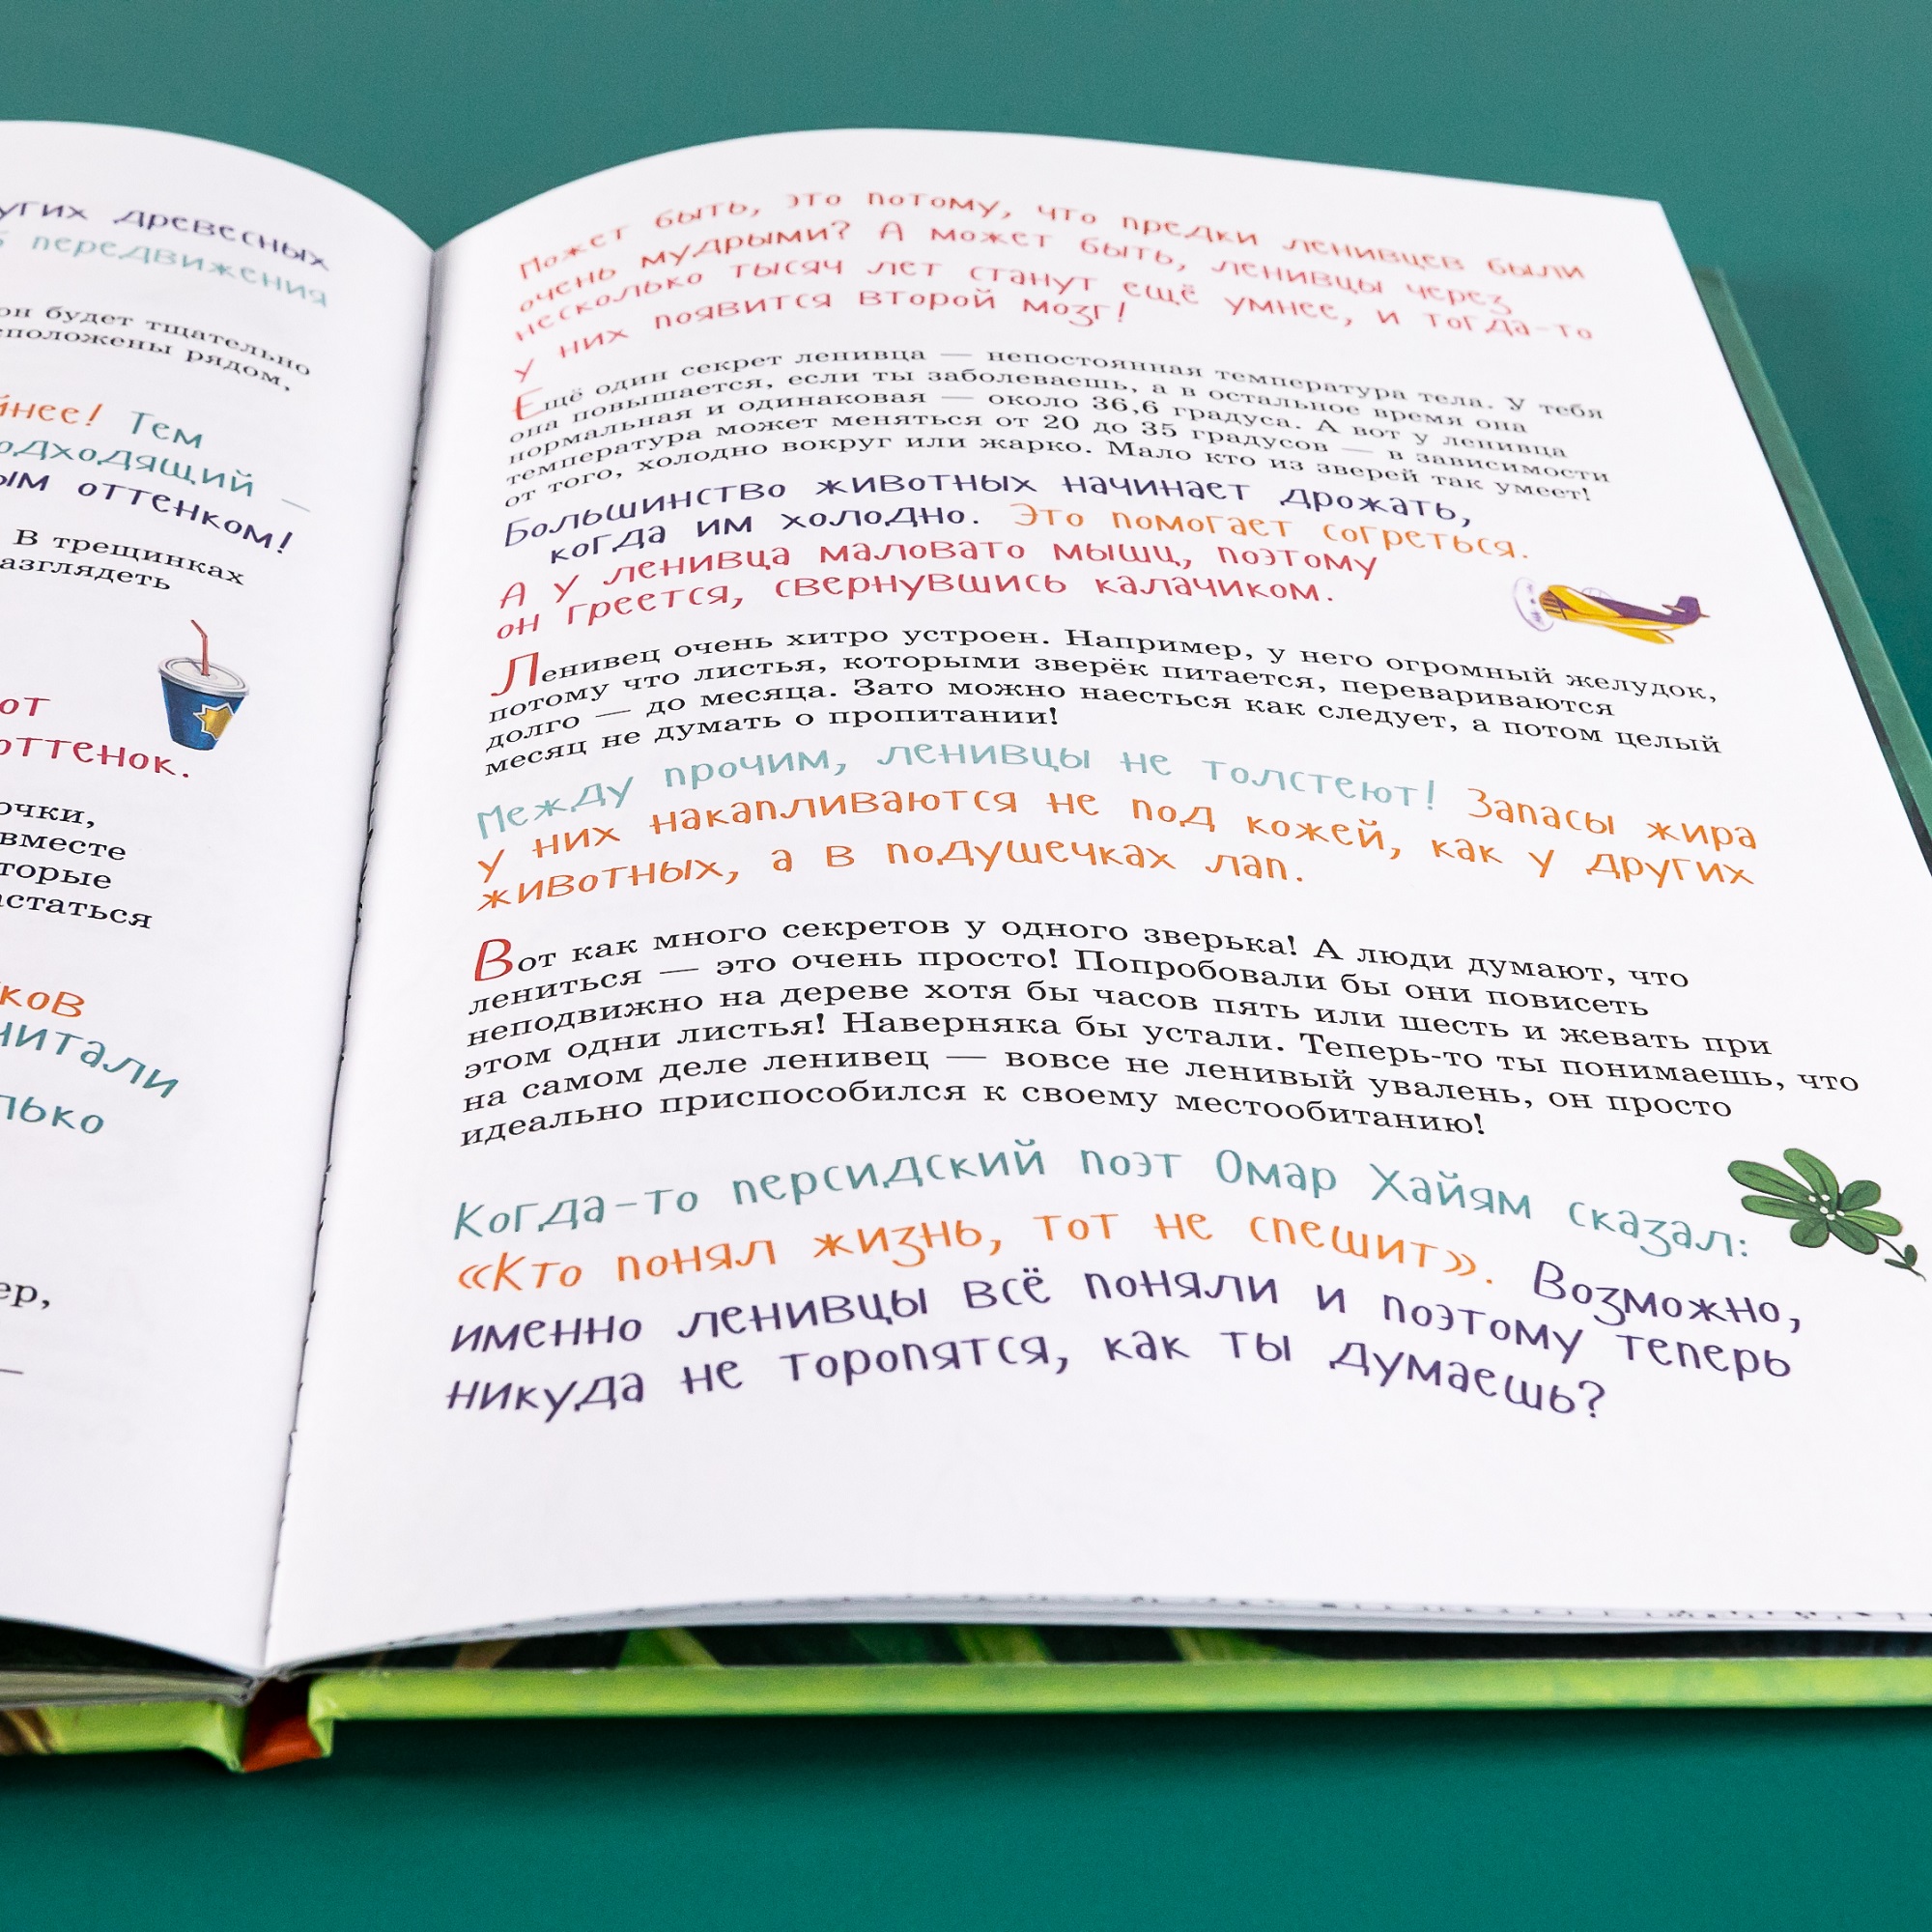 других древесных
передвижения
он будет тщательно
рядом,
Тем
подходящий —
оттенком!
В трещинках
разглядеть
оттенок.
вместе
Может быть, это потому, что предки ленивцев были
очень мудрыми? А может быть, ленивцы через
несколько тысяч лет станут ещё умнее, и тогда-то
у них появится второй мозг!
Ещё один секрет ленивца — непостоянная температура тела. У тебя
она повышается, если ты заболеваешь, а в остальное время она
нормальная и одинаковая — около 36,6 градуса. А вот у ленивца
температура может меняться от 20 до 35 градусов — в зависимости
от того, холодно вокруг или жарко. Мало кто из зверей так умеет!
Большинство животных начинает дрожать,
когда им холодно. Это помогает согреться.
А у ленивца маловато мышц, поэтому
он греется, свернувшись калачиком.
Ленивец очень хитро устроен. Например, у него огромный желудок,
потому что листья, которыми зверёк питается, перевариваются
долго — до месяца. Зато можно наесться как следует, а потом целый
месяц не думать о пропитании!
Между прочим, ленивцы не толстеют! Запасы жира
у них накапливаются не под кожей, как у других
животных, а в подушечках лап.
Вот как много секретов у одного зверька! А люди думают, что
лениться — это очень просто! Попробовали бы они повисеть
неподвижно на дереве хотя бы часов пять или шесть и жевать при
этом одни листья! Наверняка бы устали. Теперь-то ты понимаешь, что
на самом деле ленивец — вовсе не ленивый увалень, он просто
идеально приспособился к своему местообитанию!
Когда-то персидский поэт Омар Хайям сказал:
«Кто понял жизнь, тот не спешит». Возможно,
именно ленивцы всё поняли и поэтому теперь
никуда не торопятся, как ты думаешь?